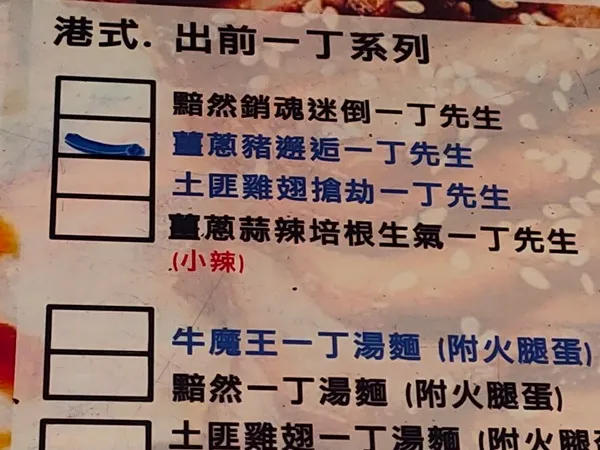 港式. 出前一丁系列
黯然銷魂迷倒一丁先生
薑蔥豬邂逅一丁先生
土匪雞翅搶劫一丁先生
薑蔥蒜辣培根生氣一丁先生
(小辣)
牛魔王一丁湯麵 (附火腿蛋)
黯然一丁湯麵 (附火腿蛋)
土匪雞翅一丁湯麵 (附火腿